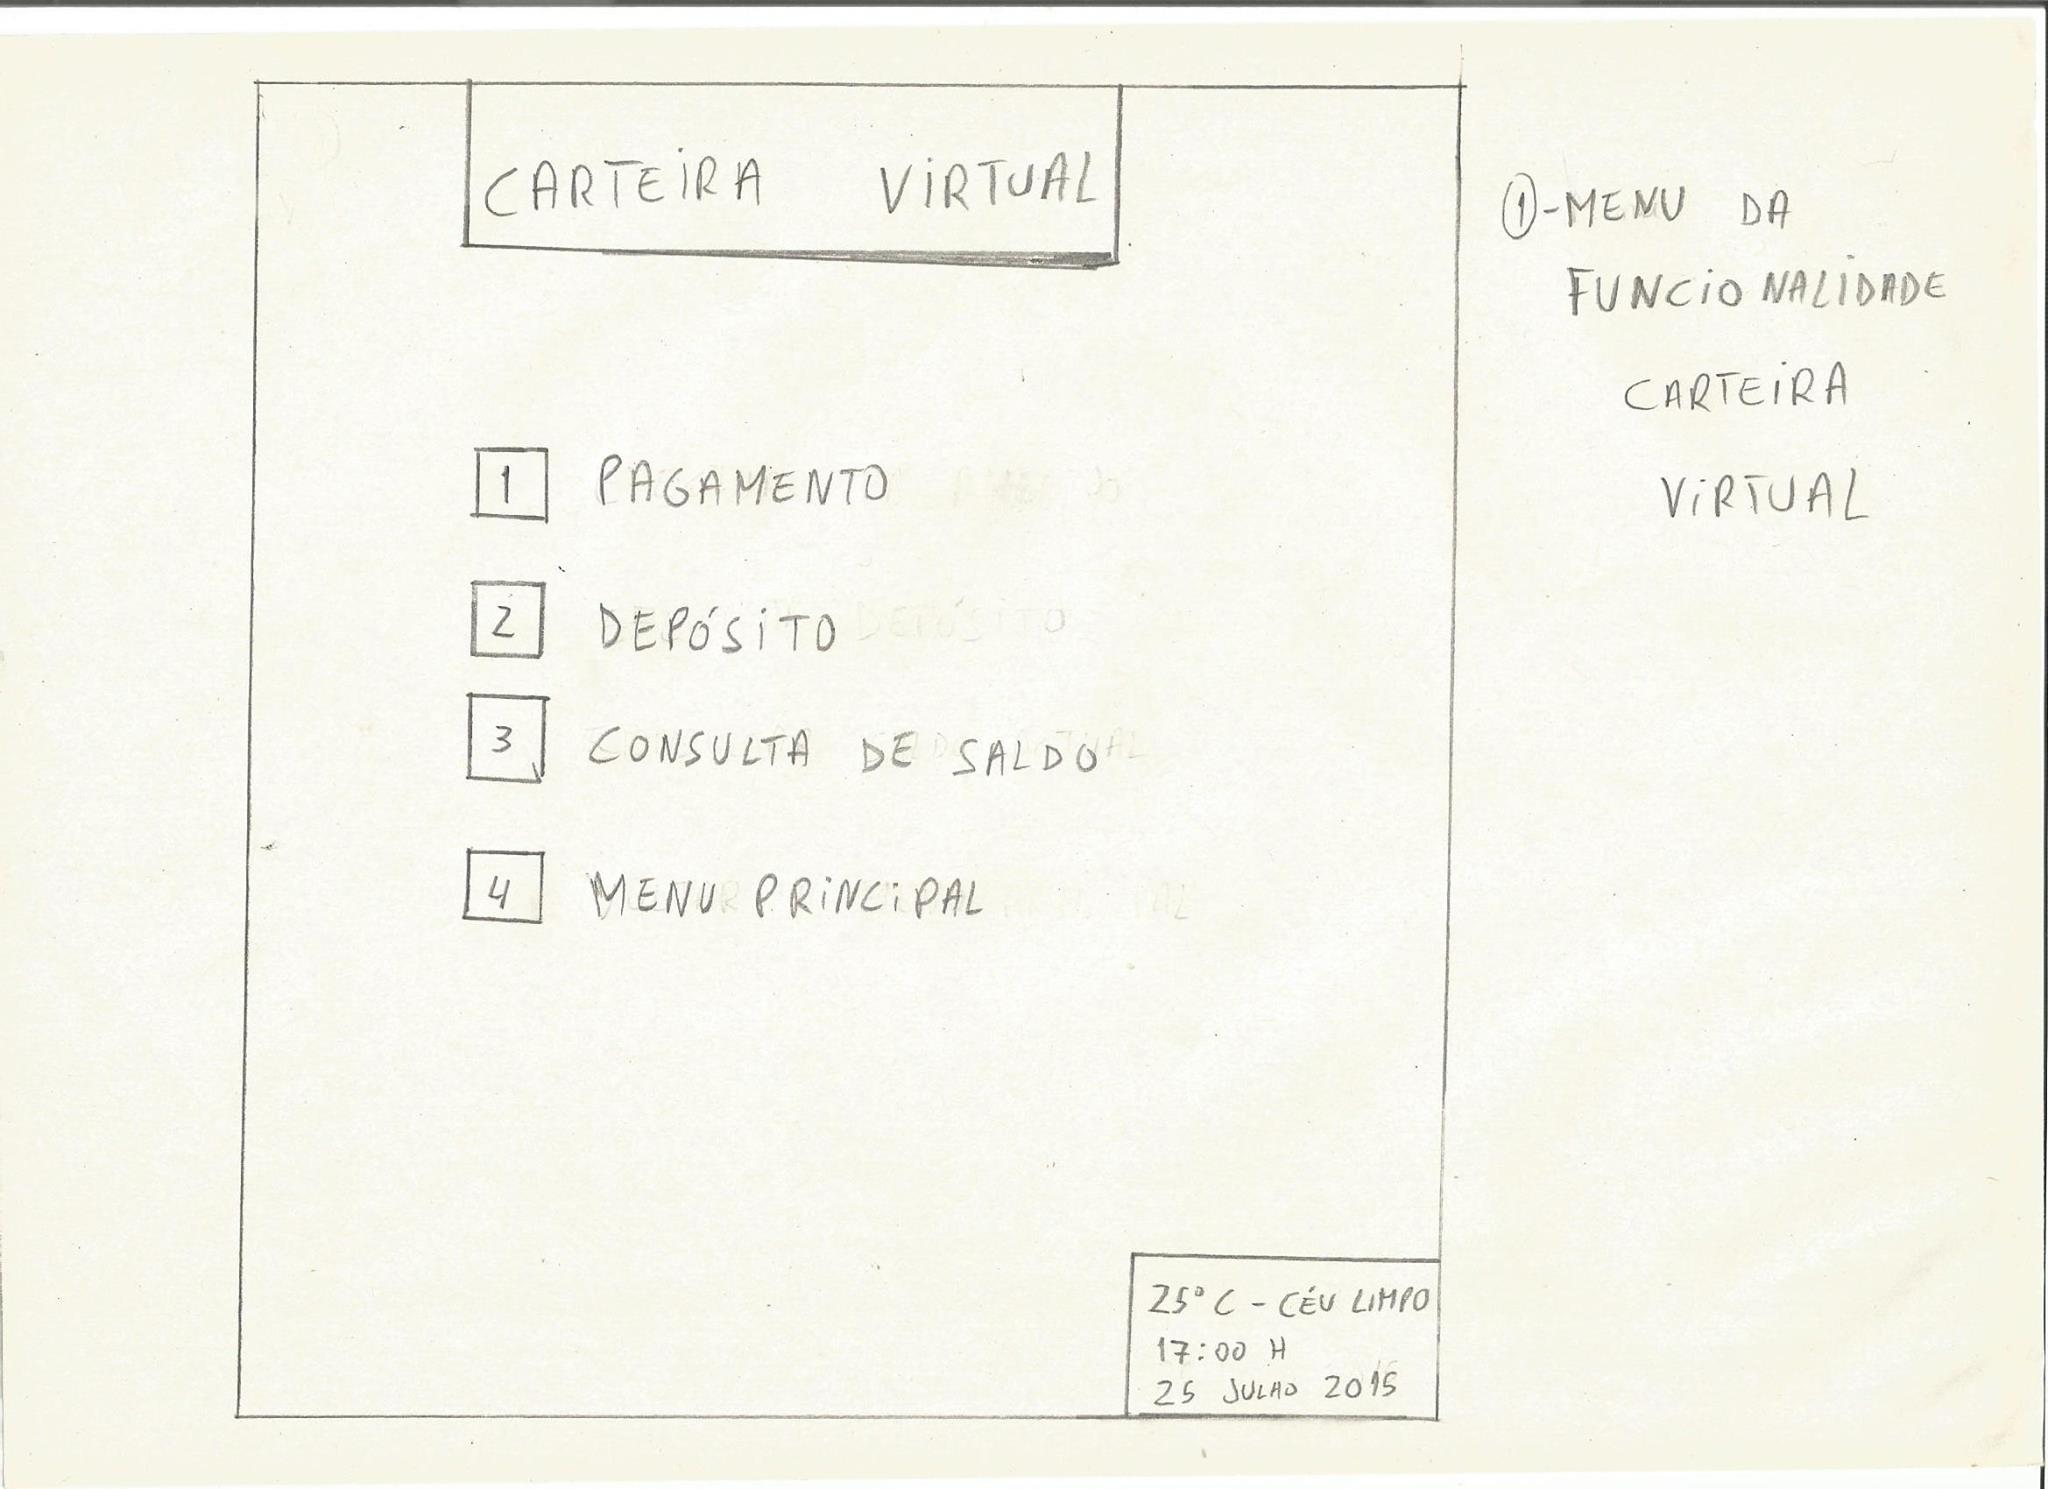 CARTEIRA VIRTUAL
1 PAGAMENTO
2 DEPÓSITO
3 CONSULTA DE SALDO
4 MENU PRINCIPAL
25° C - CÉU LIMPO
17:00 H
25 JULHO 2015
1 - MENU DA
FUNCIONALIDADE
CARTEIRA
VIRTUAL